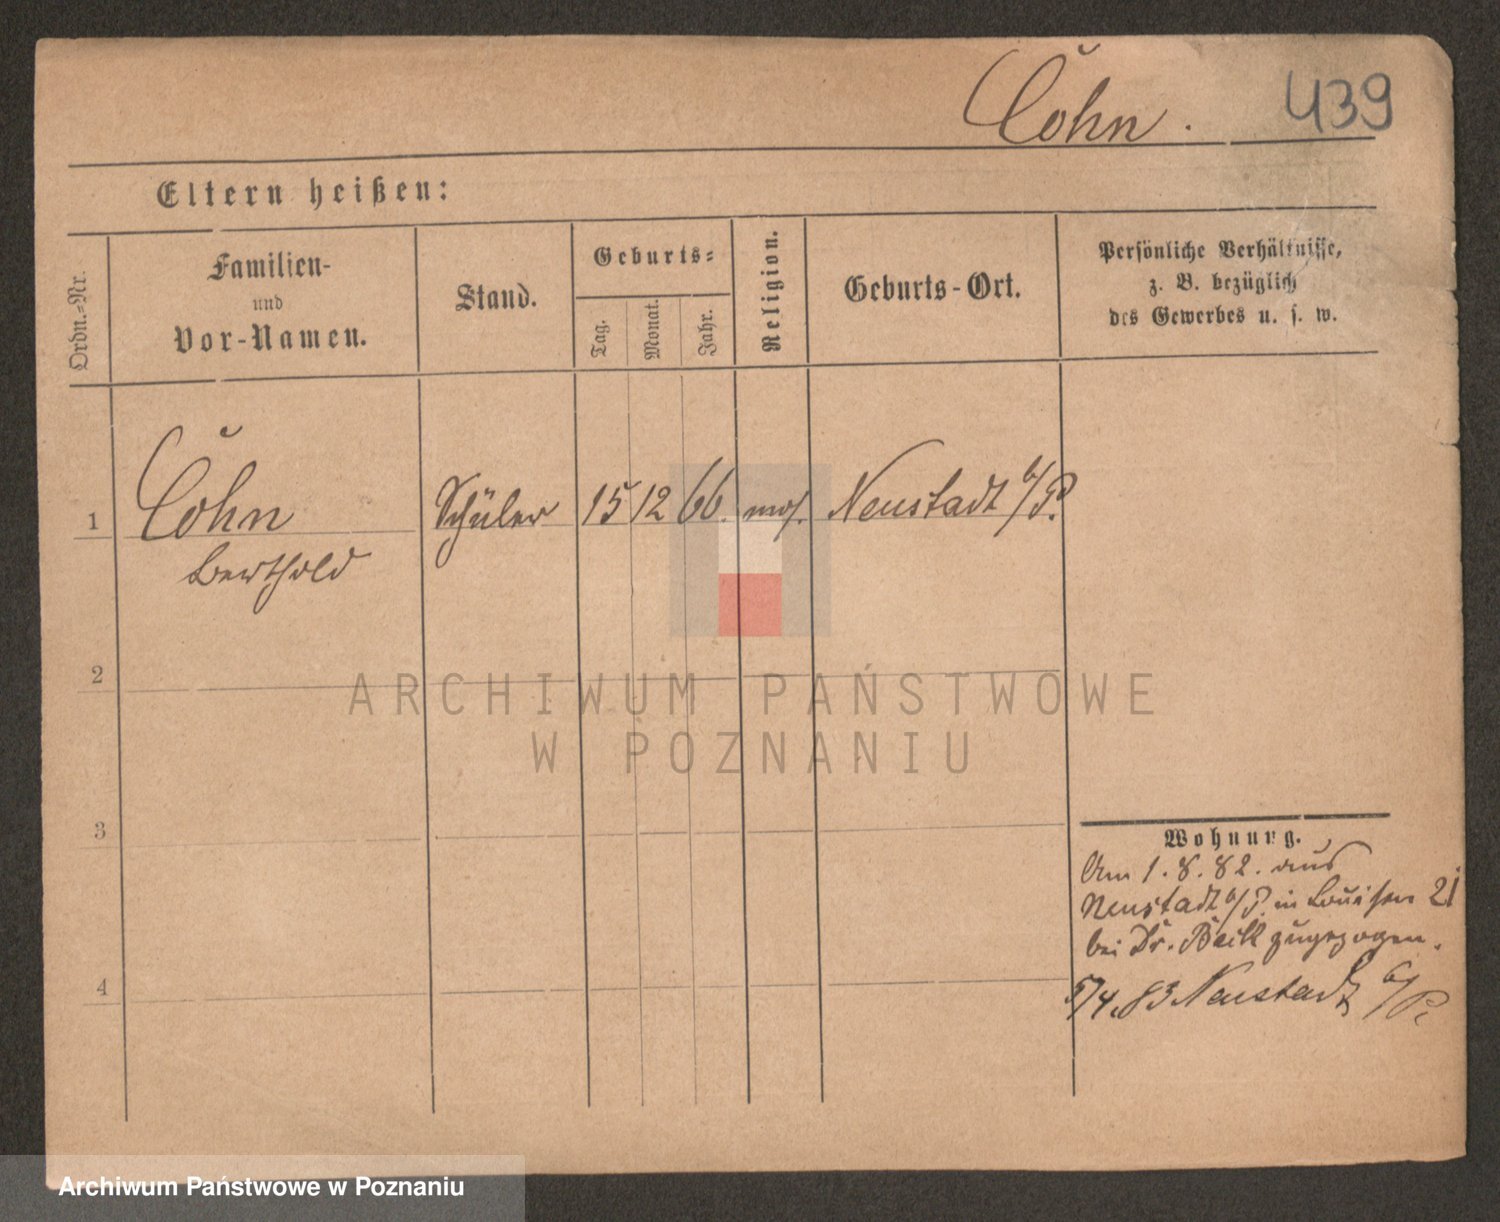 Cohn.
439
Eltern heißen:
Ordn.-Nr.
Familien-
und
Vor-Namen.
Stand.
Geburts-
Tag.
Monat.
Jahr.
Religion.
Geburts-Ort.
Persönliche Verhältnisse,
z. B. bezüglich
des Gewerbes u. s. w.
1 Cohn Schüler 15 12 66. mos. Neustadt b/P.
Berthold
2
3
4
Wohnung.
Am 1.8.82. aus
Neustadt b/P. in Louisen 21
bei Dr. zugezogen.
5/4.83 Neustadt b/P.
ARCHIWUM PAŃSTWOWE
W POZNANIU
Archiwum Państwowe w Poznaniu